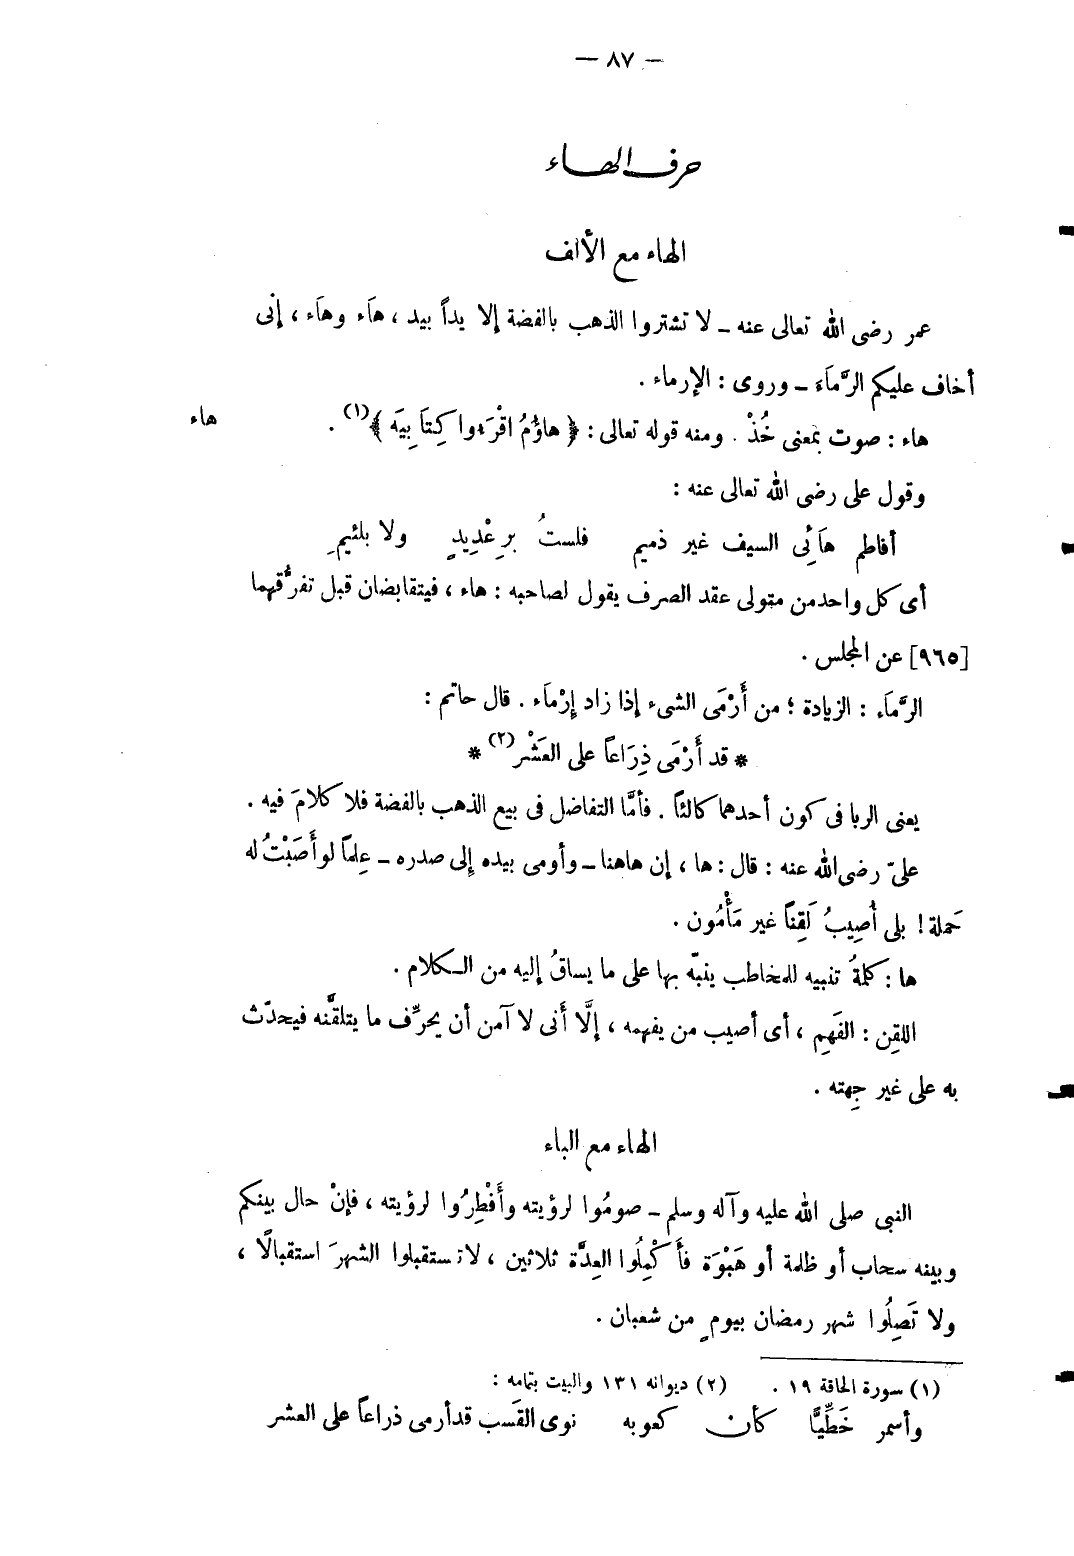 — ٨٧ —
حرف الهاء
الهاء مع الألف
عمر رضى الله تعالى عنه ــ لا تشتروا الذهب بالفضة إلا يداً بيد ، هَاَء وهَاَء ، إنى
أخاف عليكم الرَّماَءَ ــ وروى : الإرماء .
هاء
هاء : صوت بمعنى خُذْ . ومنه قوله تعالى : ﴿ هاؤُمُ اقْرَءوا كِتاَبِيَه ﴾(١) .
وقول على رضى الله تعالى عنه :
أفاطم هَاَئِى السيف غير ذميم فلستُ برِعْدِيدٍ ولا بلئيمِ
أى كل واحد من متولى عقد الصرف يقول لصاحبه : هاء ، فيتقابضان قبل تفرُّقهما
[٩٦٥] عن المجلس .
الرَّماَء : الزيادة ؛ من أَرْمَى الشىء إذا زاد إِرْماَء . قال حاتم :
* قد أَرْمَى ذِرَاعاً على العَشْر(٢) *
يعنى الربا فى كون أحدهما كالئاً . فأمَّا التفاضل فى بيع الذهب بالفضة فلا كلامَ فيه .
علىّ رضى الله عنه : قال : ها ، إن هاهنا ــ وأومى بيده إلى صدره ــ عِلماً لو أَصَبْتُ له
حَملة ! بلى أُصِيبُ لَقِناً غير مَأْمُون .
ها : كلمةُ تنبيه للمخاطب ينبّه بها على ما يساقُ إليه من الكلام .
اللقِن : الفَهِم ، أى أصيب من يفهمه ، إلَّا أَنى لا آمن أن يحرِّف ما يتلقَّنه فيحدّث
به على غير جِهته .
الهاء مع الباء
النبى صلى الله عليه وآله وسلم ــ صومُوا لرؤيته وأَفْطِرُوا لرؤيته ، فإنْ حال بينكم
وبينه سحاب أو ظلمة أو هَبْوَة فأَكْمِلُوا العِدَّة ثلاثين ، لا تستقبلوا الشهرَ استقبالًا ،
ولا تَصِلُوا شهر رمضان بيومٍ من شعبان .
(١) سورة الحاقة ١٩ . (٢) ديوانه ١٣١ والبيت بتمامه :
وأسمر خَطِّيًّا كأن كعوبه نوى القَسب قد أرمى ذراعاً على العشر